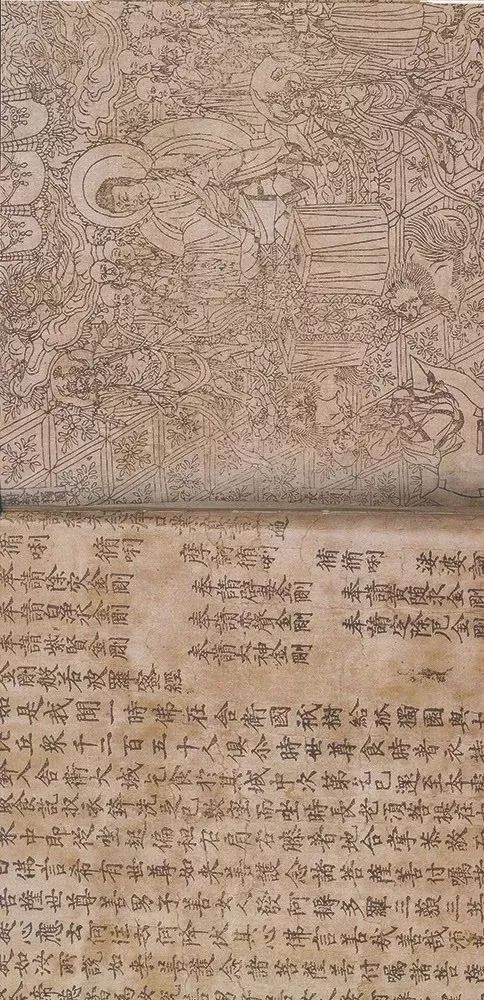 脩唎 脩唎 摩訶脩唎 脩脩唎 娑婆訶
奉請除灾金剛 奉請辟毒金剛 奉請黃隨求金剛
奉請白淨水金剛 奉請赤聲金剛 奉請定除厄金剛
奉請紫賢金剛 奉請大神金剛
金剛般若波羅蜜經
如是我聞一時佛在舍衛國祇樹給孤獨園與大
比丘眾千二百五十人俱尒時世尊食時著衣持
鉢入舍衛大城乞食於其城中次第乞已還至本處
飯食訖收衣鉢洗足已敷座而坐時長老須菩提在大
眾中即從坐起偏袒右肩右膝著地合掌恭敬而
白佛言希有世尊如來善護念諸菩薩善付囑諸
菩薩世尊善男子善女人發阿耨多羅三藐三菩
提心應云何住云何降伏其心佛言善哉善哉須菩
提如汝所說如來善護念諸菩薩善付囑諸菩薩